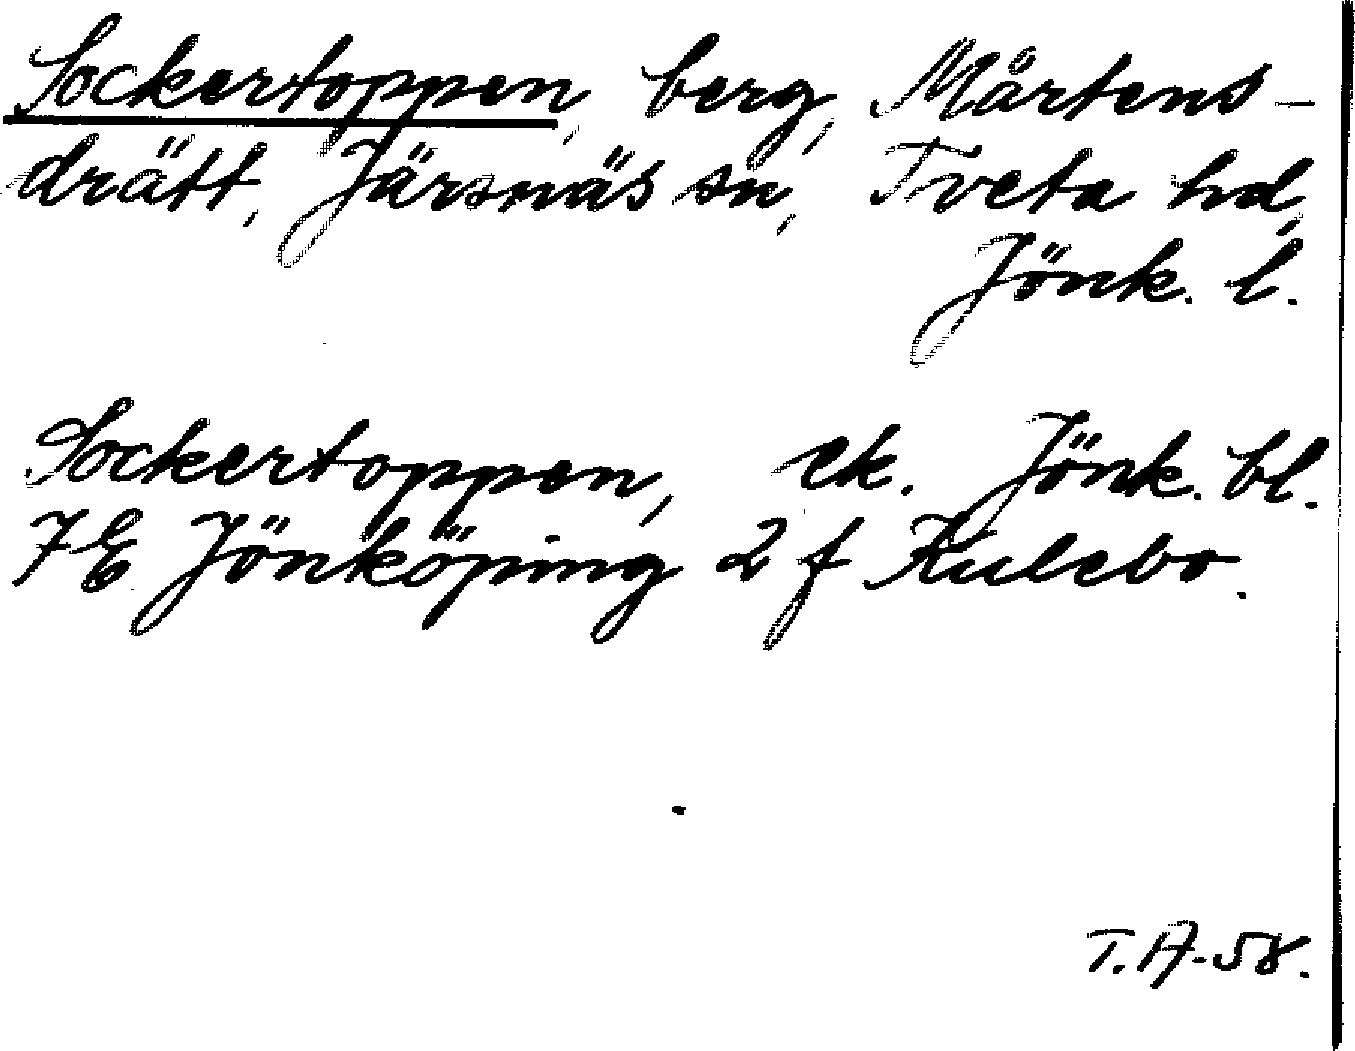 Sockertoppen, berg, Mårtens-
drätt, Järsnäs sn, Tveta hd,
Jönk. l.
Sockertoppen, ek. Jönk. bl.
7E Jönköping 2 f Kulebo.
T.A-58.